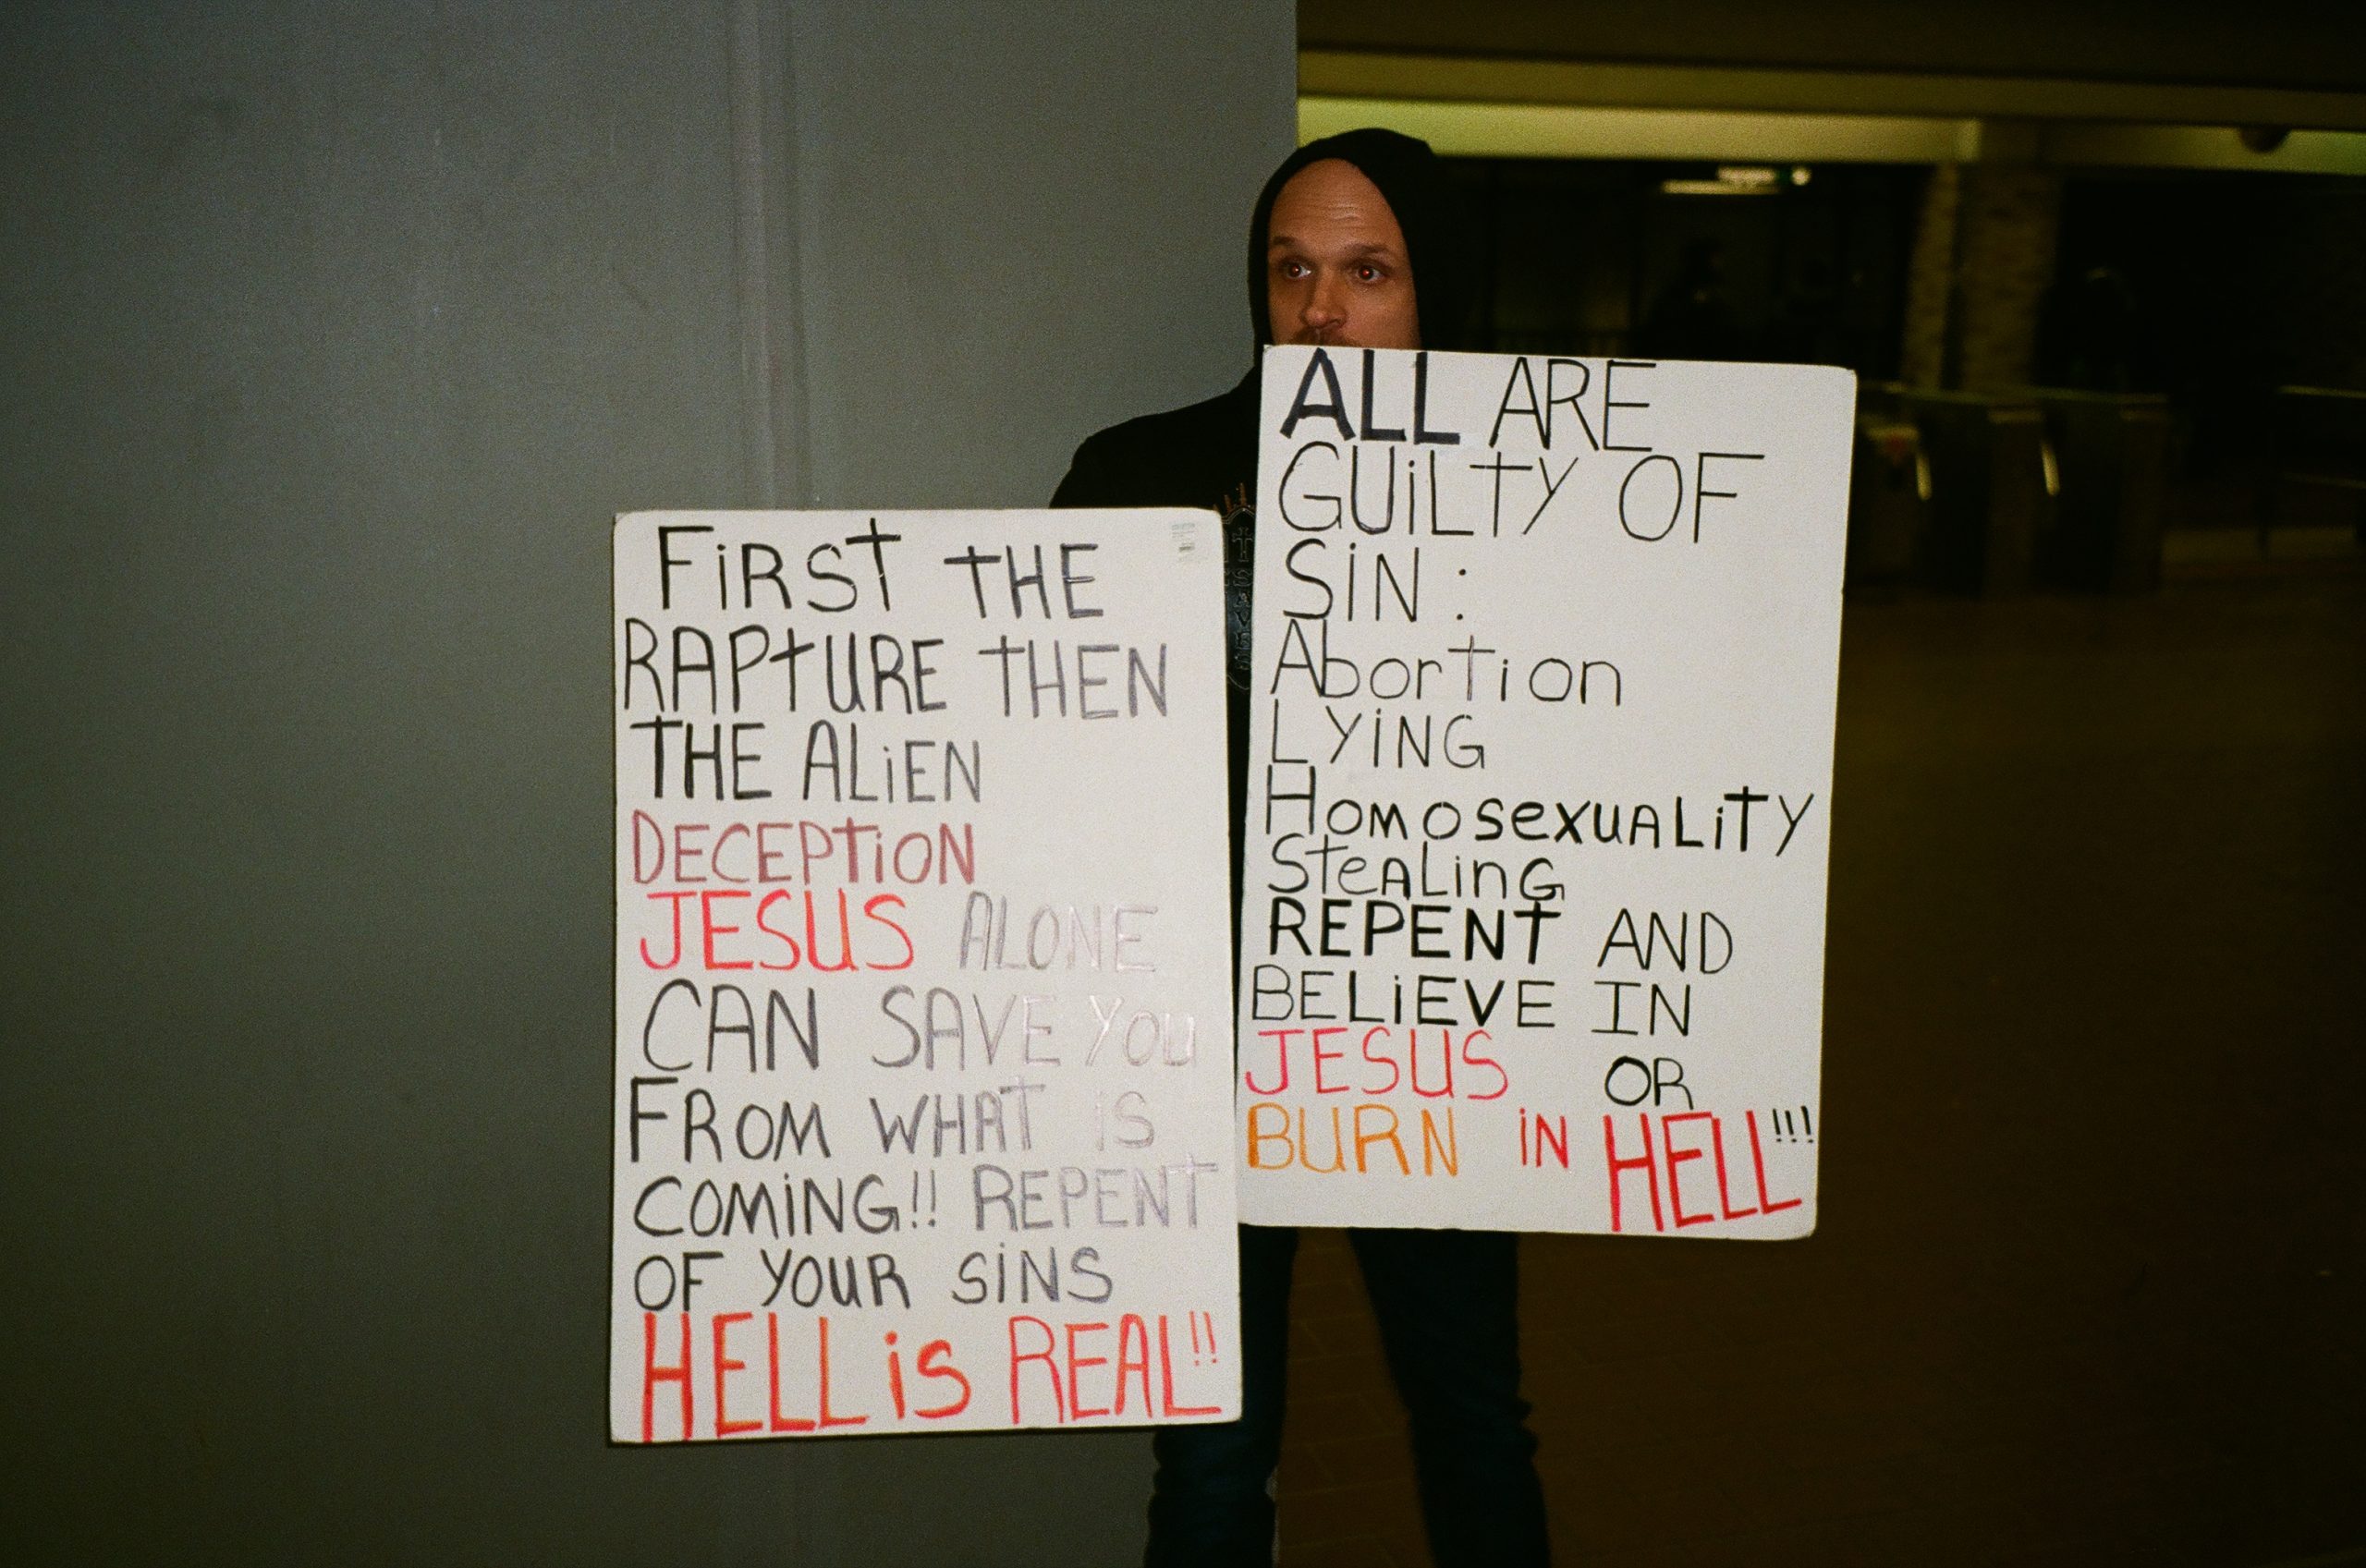 FiRST THE
RAPTURE THEN
THE ALiEN
DECEPTiON
JESUS ALONE
CAN SAVE YOU
FROM WHAT iS
COMiNG!! REPENT
OF YOUR SiNS
HELL iS REAL!!
ALL ARE
GUiLTY OF
SiN:
Abortion
LYiNG
HomosexuALiTY
SteALinG
REPENT AND
BELiEVE IN
JESUS OR
BURN iN HELL!!!